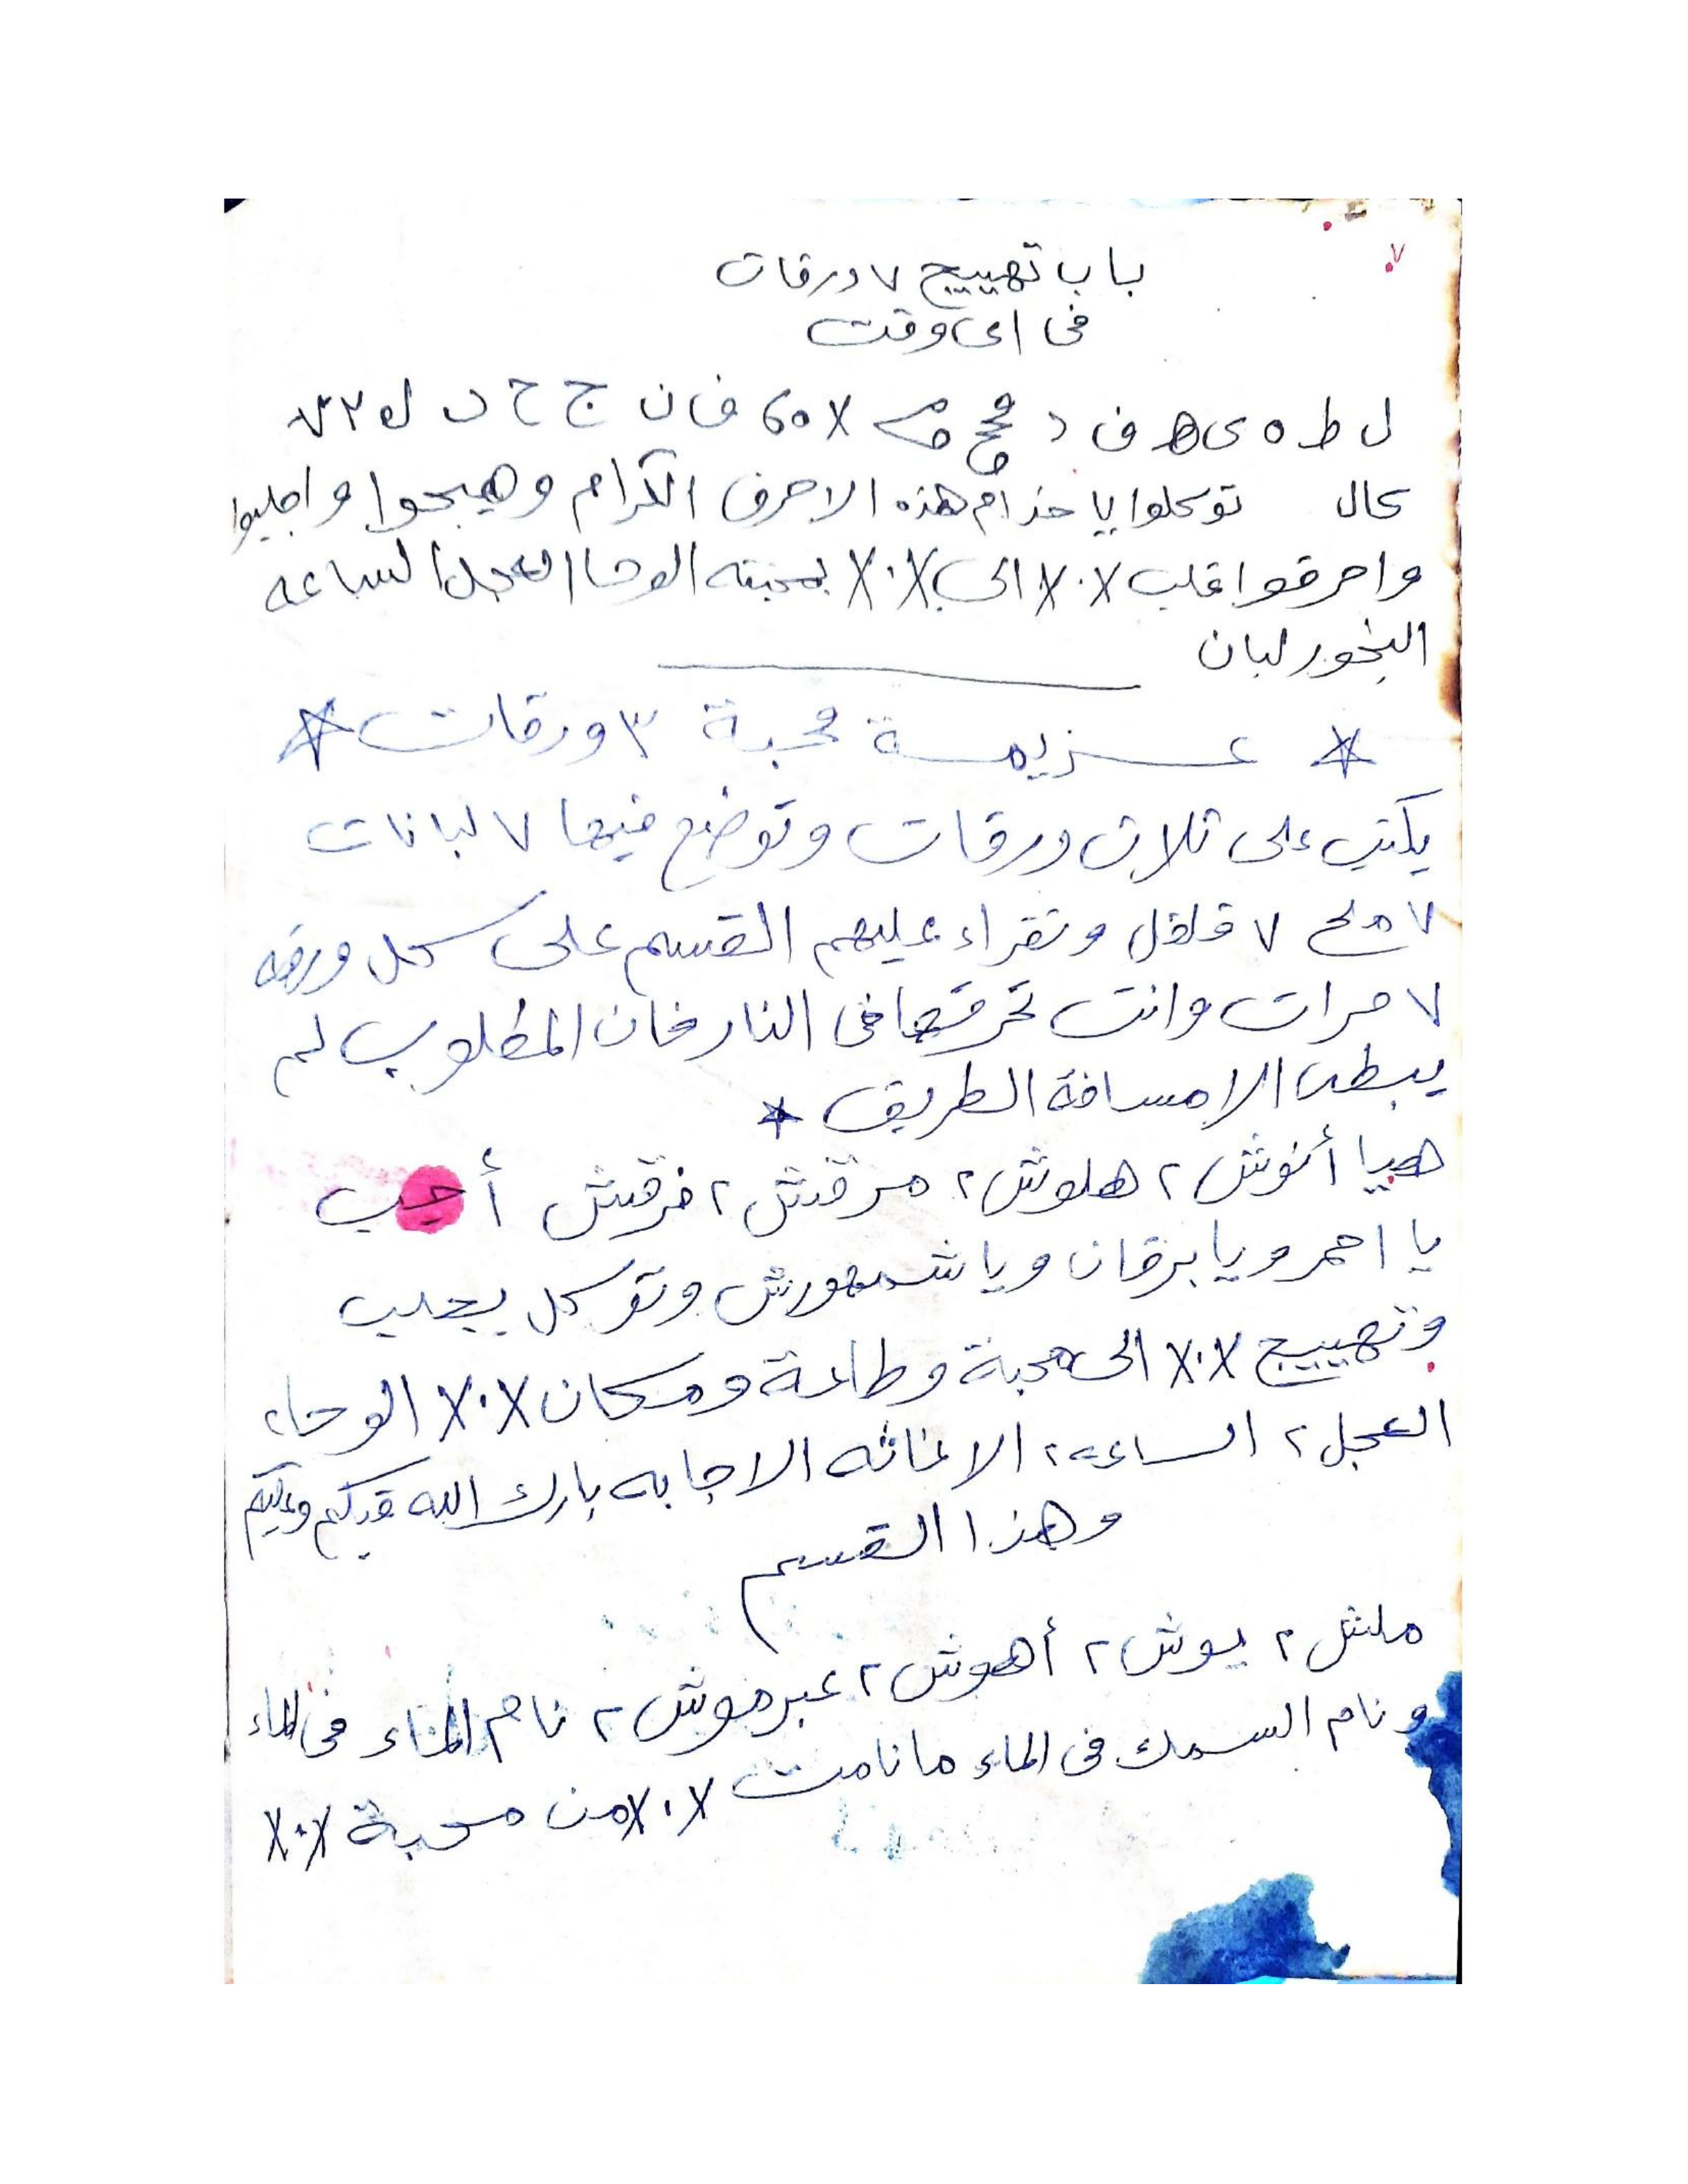 ٧
باب تهييج ٧ ورقات
فى اى وقت
ل ط ه ى ھ ف د X ٥ ف ا ن ج ح د
توكلوا يا خدام هذه الاحرف الكرام وهيجوا واجلبوا
واحرقوا قلب X.X الى X.X بمحبته الوحا العجل الساعه
البخور لبان
* عزيمة محبة ٣ ورقات *
يكتب على ثلاث ورقات وتوضع فيها ٧ لبانات
٧ ملح ٧ فلفل وتقراء عليهم القسم على كل ورقه
٧ مرات وانت تحرقها فى النار فان المطلوب لم
يبطى الا مسافة الطريق *
هيا أنوش ٢ هلوش ٢ مرقش ٢ فرقش أجب
يا احمر ويا برقان ويا شمهورش وتوكل بجلب
وتهييج X.X الى محبة وطاعة ومكان X.X الوحا ٢
العجل ٢ الساعه ٢ الاغاثه الاجابه بارك الله فيكم وعليكم
وهذا القسم
ملش ٢ يوش ٢ أهوش ٢ عبرموش ٢ نام الماء فى الماء
ونام السمك فى الماء ما نامت X.X من محبة X.X